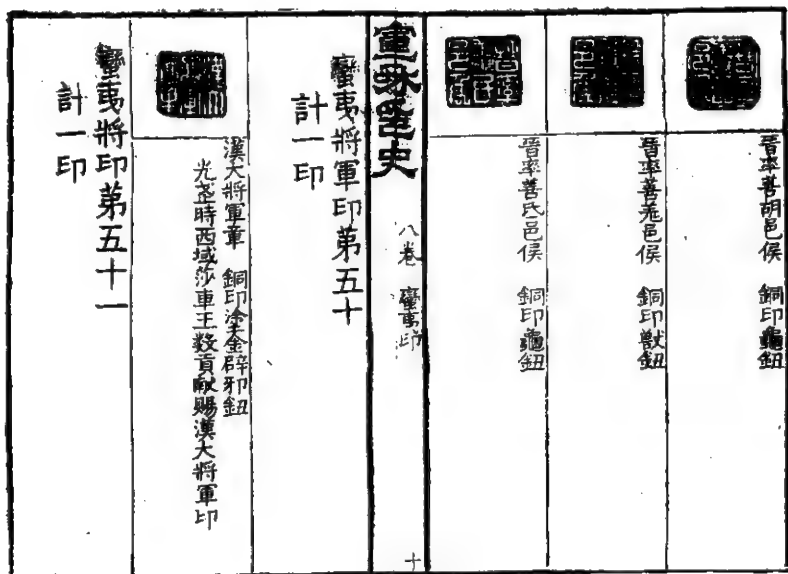 晉率善胡邑侯　銅印龜鈕
晉率善羌邑侯　銅印獸鈕
晉率善氏邑侯　銅印龜鈕
宣和印史　八卷　蠻夷印　十
蠻夷將軍印第五十
計一印
漢大將軍章　銅印塗金辟邪鈕
光武時西域莎車王數貢獻賜漢大將軍印
蠻夷將印第五十一
計一印